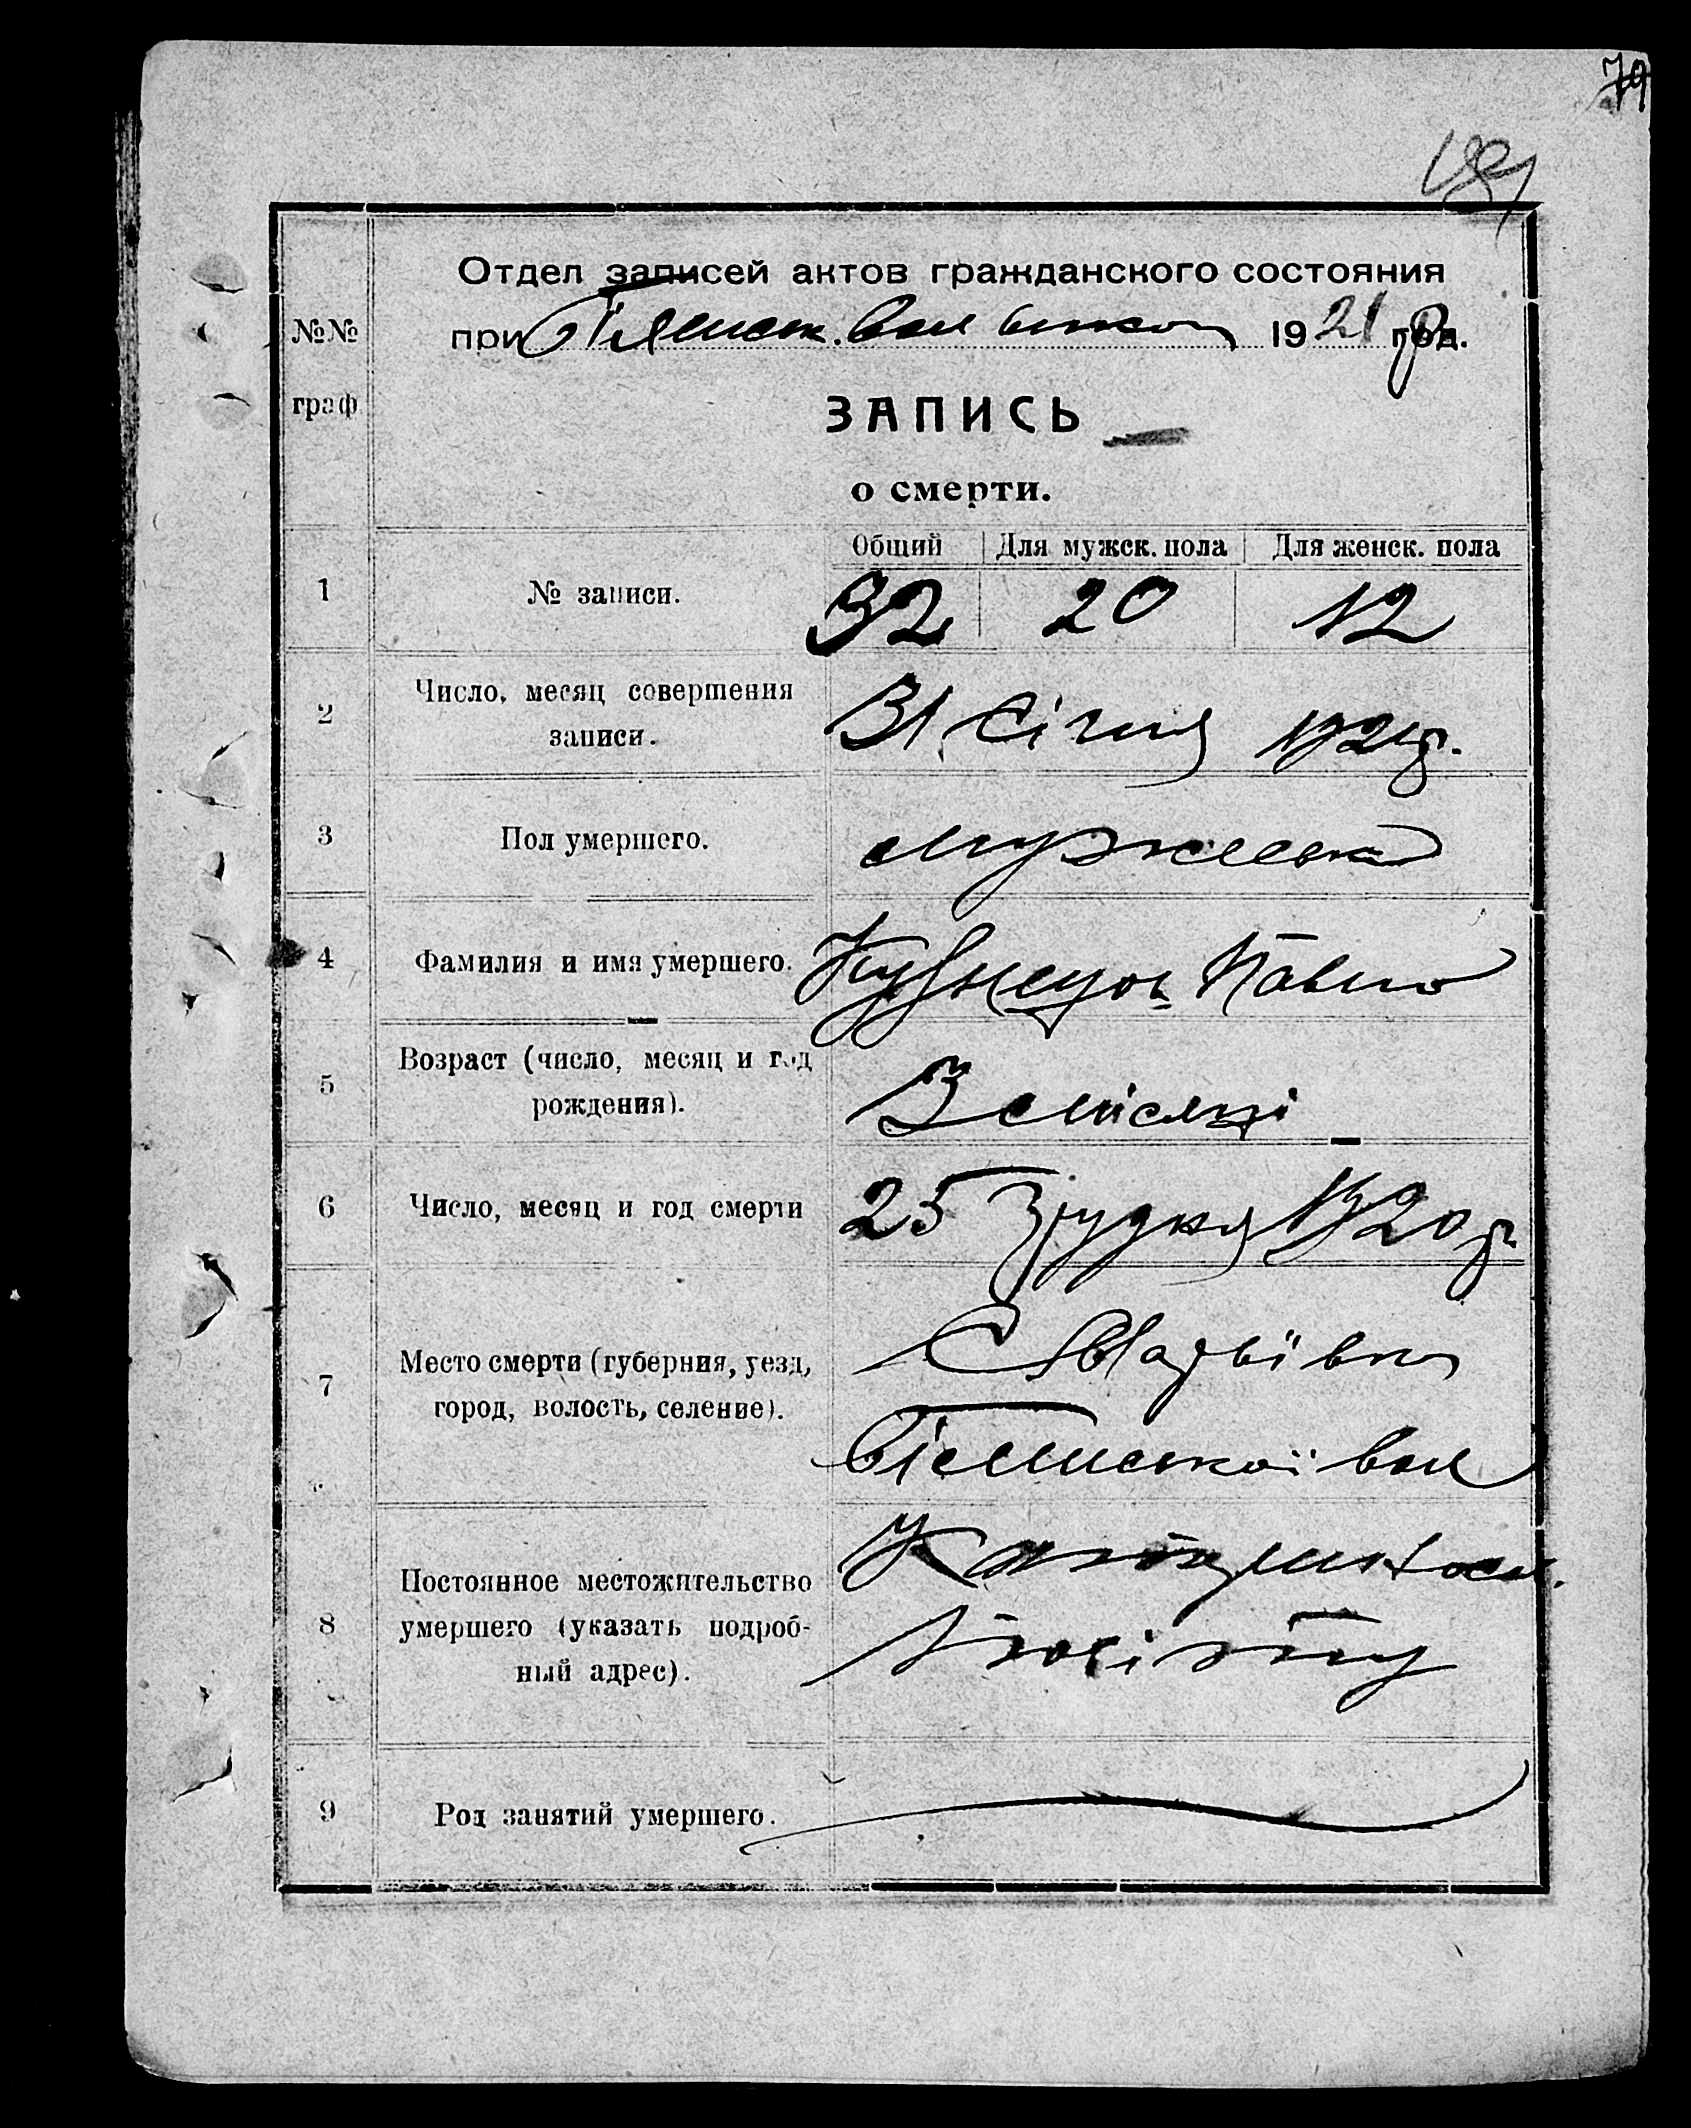 79
Отдел записей актов гражданского состояния
при вол 1921 год.
№№
граф
ЗАПИСЬ
о смерти.
Общий Для мужск. пола Для женск. пола
1 № записи. 32 20 12
2 Число, месяц совершения
записи.
31 Січня 1921р.
3 Пол умершего. мужеська
4 Фамилия и имя умершего. Кузнецов Павло
5 Возраст (число, месяц и год
рождения).
3 місяці
6 Число, месяц и год смерти 25 Грудня 1920 р.
7 Место смерти (губерния, уезд,
город, волость, селение).
С Мар'ївка
вол
8 Постоянное местожительство
умершего (указать подроб-
ный адрес).
повіту
9 Род занятий умершего.